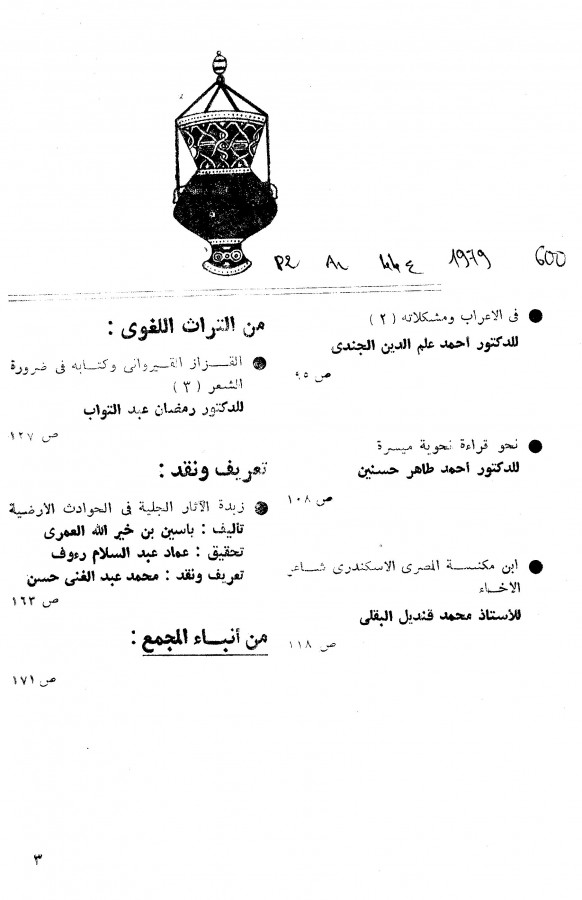 1979 600
● فى الاعراب ومشكلاته ( ٢ )
للدكتور احمد علم الدين الجندى
ص ٩٥
● نحو قراءة نحوية ميسرة
للدكتور احمد طاهر حسنين
ص ١٠٨
● ابن مكنسة المصرى الاسكندرى شاعر
الاخاء
للأستاذ محمد قنديل البقلى
ص ١١٨
من التراث اللغوى :
● القزاز القيروانى وكتابه فى ضرورة
الشعر ( ٣ )
للدكتور رمضان عبد التواب
ص ١٢٧
تعريف ونقد :
● زبدة الآثار الجلية فى الحوادث الأرضية
تاليف : ياسين بن خير الله العمرى
تحقيق : عماد عبد السلام رءوف
تعريف ونقد : محمد عبد الغنى حسن
ص ١٦٣
من أنبـاء المجمع :
ص ١٧١
٣